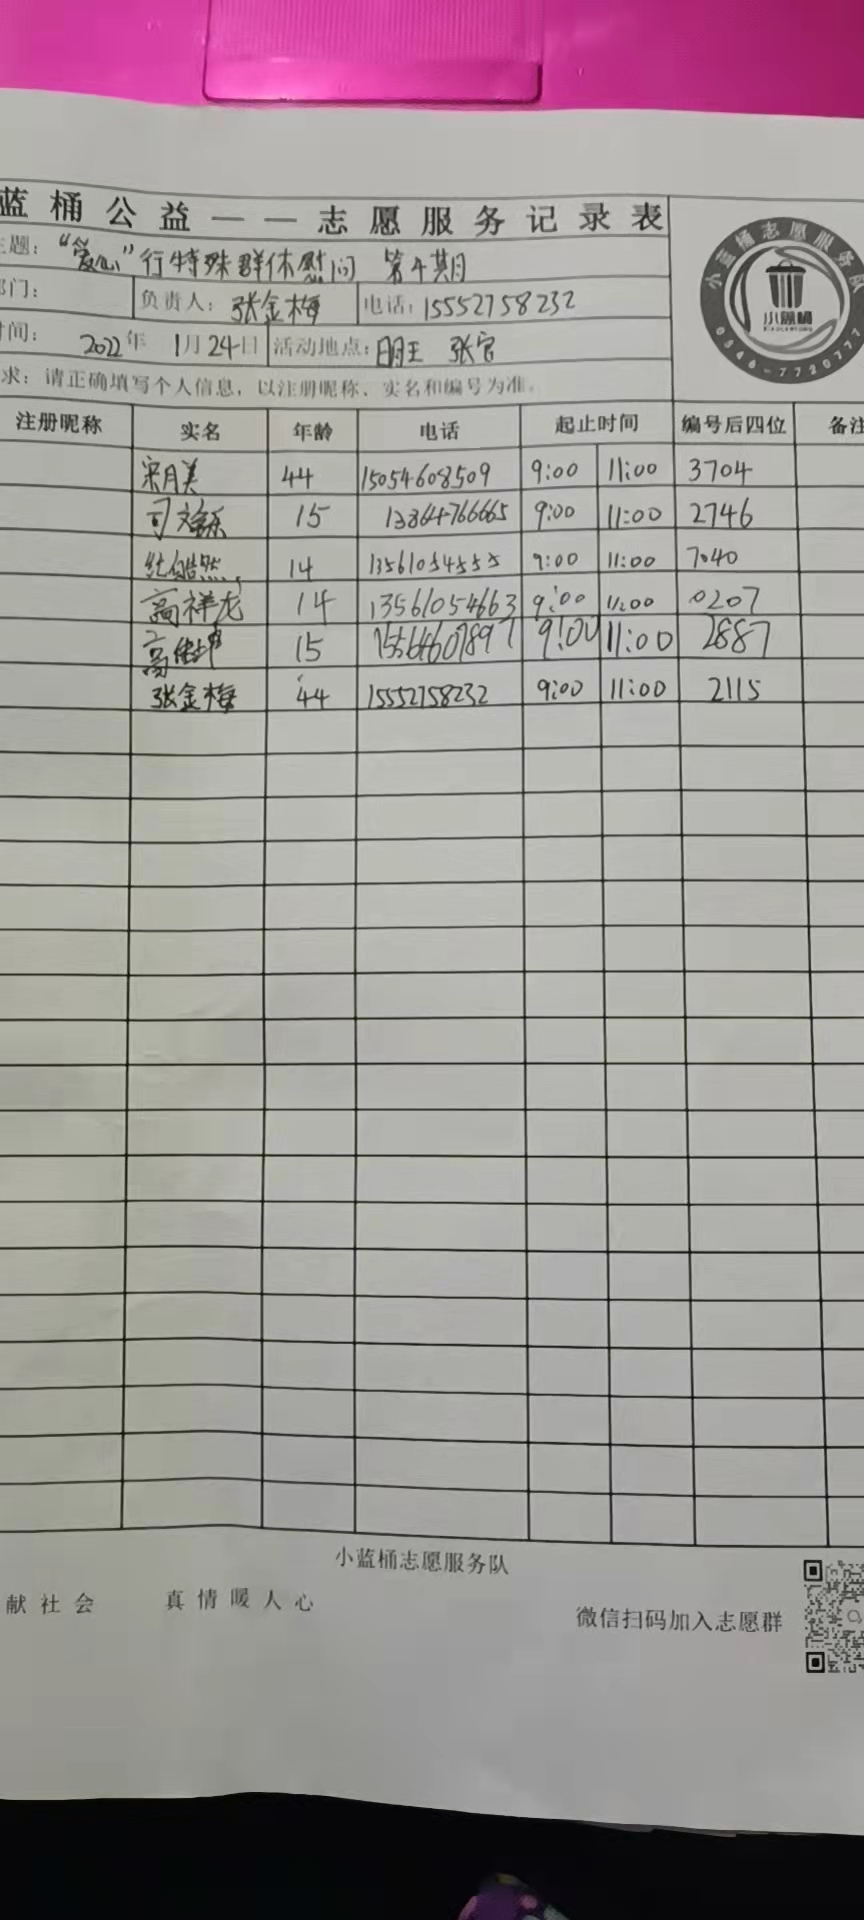 蓝桶公益——志愿服务记录表
主题：“爱心”行特殊群体慰问 第4期
部门： 负责人：张金梅 电话：15552758232
时间： 2022年 1月24日 活动地点：明王 张官
求：请正确填写个人信息，以注册昵称、实名和编号为准。
小蓝桶志愿服务队
小蓝桶
0546-7720777
注册昵称 实名 年龄 电话 起止时间 编号后四位 备注
宋月美 44 15054608509 9:00 11:00 3704
司文 15 13864766665 9:00 11:00 2746
纪皓然 14 13561054555 9:00 11:00 7040
高祥龙 14 13561054663 9:00 11:00 0207
高 15 15564607897 9:00 11:00 2887
张金梅 44 15552758232 9:00 11:00 2115
小蓝桶志愿服务队
献社会 真情暖人心
微信扫码加入志愿群